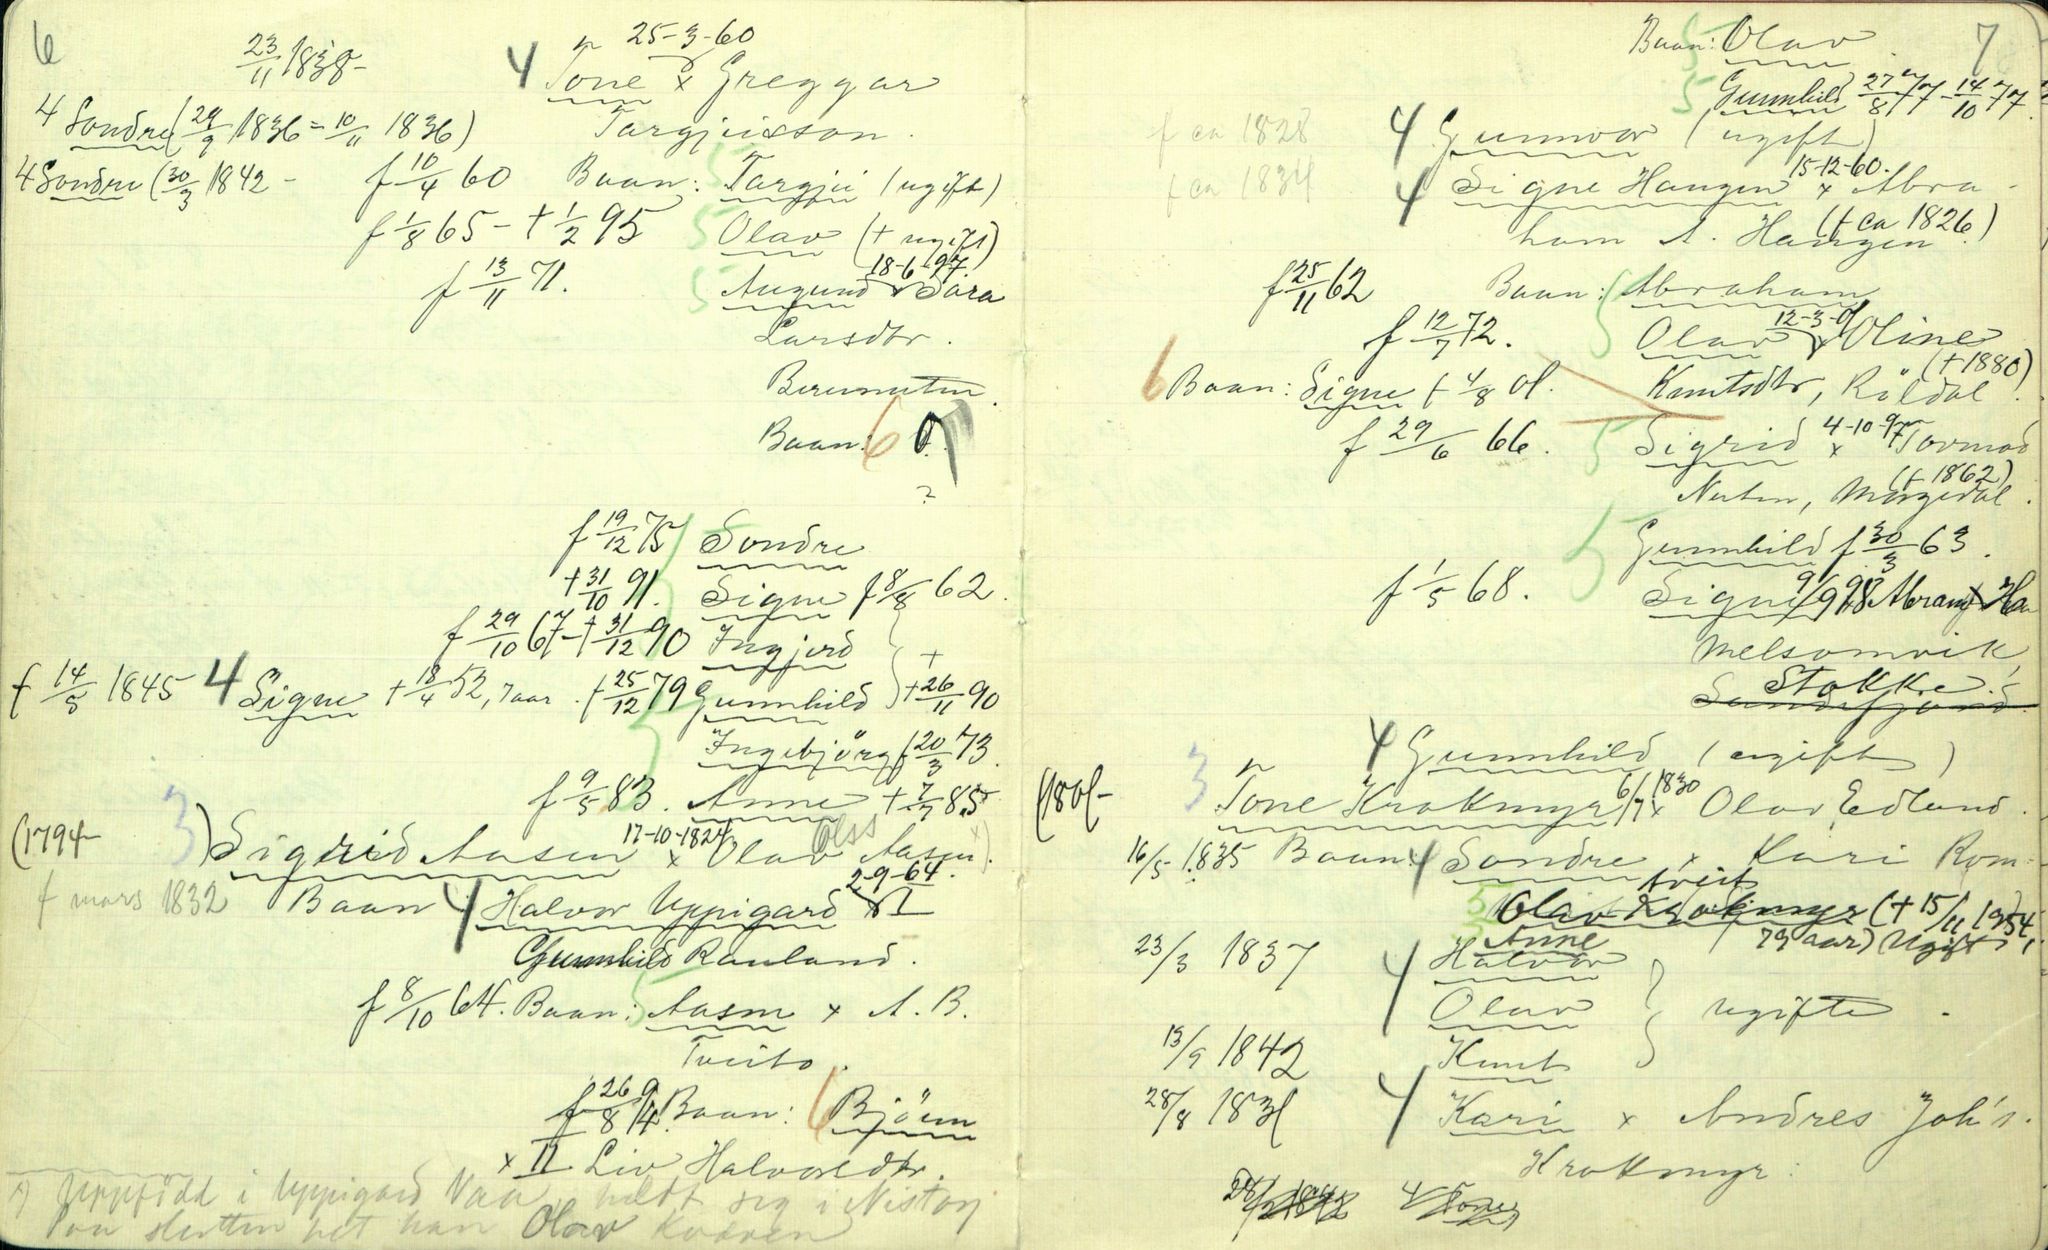 6
23/11 1838-
25-3-60
4 Tone x Greggar
4 Sondre (29/9 1836 = 10/11 1836)
Targjeisson.
4 Sondre (30/3 1842 -
f 10/4 60 Baan: 5 Targjei (ugift)
f 1/8 65 - + 1/2 95 5 Olav (+ ugift)
18-6-97.
f 13/11 71. 5 Augund x Sara
Larsdtr.
Baan: 6 0.
?
f 19/12 75 Sondre
+ 31/10 91. Signe f 8/8 62.
f 29/10 67 - + 31/12 90 Ingjerd +
f 14/5 1845 4 Signe + 18/4 52, 7 aar. f 25/12 79 Gunnhild + 26/11 90
5 Ingebjörg f 20/3 73.
f 9/5 83. Anne + 7/7 85
17-10-1824 Olss
(1794- 3) Sigrid Aasen x Olav Aasen x).
2-9-64.
f mars 1832 Baan 4 Halvor Uppigard x I
Gunnhild Rauland.
f 8/10 64. Baan: 5 Aasne x A. B.
Tveito.
f 26/8 Baan: 6 Björn
x II Liv Halvorsdtr.
x) Uppfödd i Uppigard Vaa, heldt sig i Nistog
Paa slutten het han Olav Kvæven
7
Baan: 5 Olav.
5 Gunnhild 27/8 77 - 14/10 77.
f ca 1828 4 Gunnvor (ugift)
15-12-60.
f ca 1834 4 Signe Haugen x Abra-
(+ ca 1826)
ham A. Haugen.
f 25/11 62 Baan: 5 Abraham
12-3-01
f 12/7 72. Olav x Oline
(+ 1880)
6 Baan: Signe f 4/8 01. Knutsdtr, Röldal.
4-10-97
f 29/6 66. 5 Sigrid x Tormod
(f 1862)
Nuten, Mogedal.
5 Gunnhild f 30/3 63.
f 1/5 68. Signe
Melsomvik,
Stokke.
Sandefjord.
4 Gunnhild (ugift)
6/7 1830
(1801- 3 Tone Krokmyr x Olav Edland.
16/5 1835 Baan: 4 Sondre x Kari Rom-
tveit
5 Olav Krokmyr (+ 15/11 1954,
79 aar) Ugift.
Anne
23/3 1837 4 Halvor
Olav ugifte.
13/9 1842 Knut
28/8 1831 4 Kari x Andres Joh's.
Krokmyr.
4 Tone